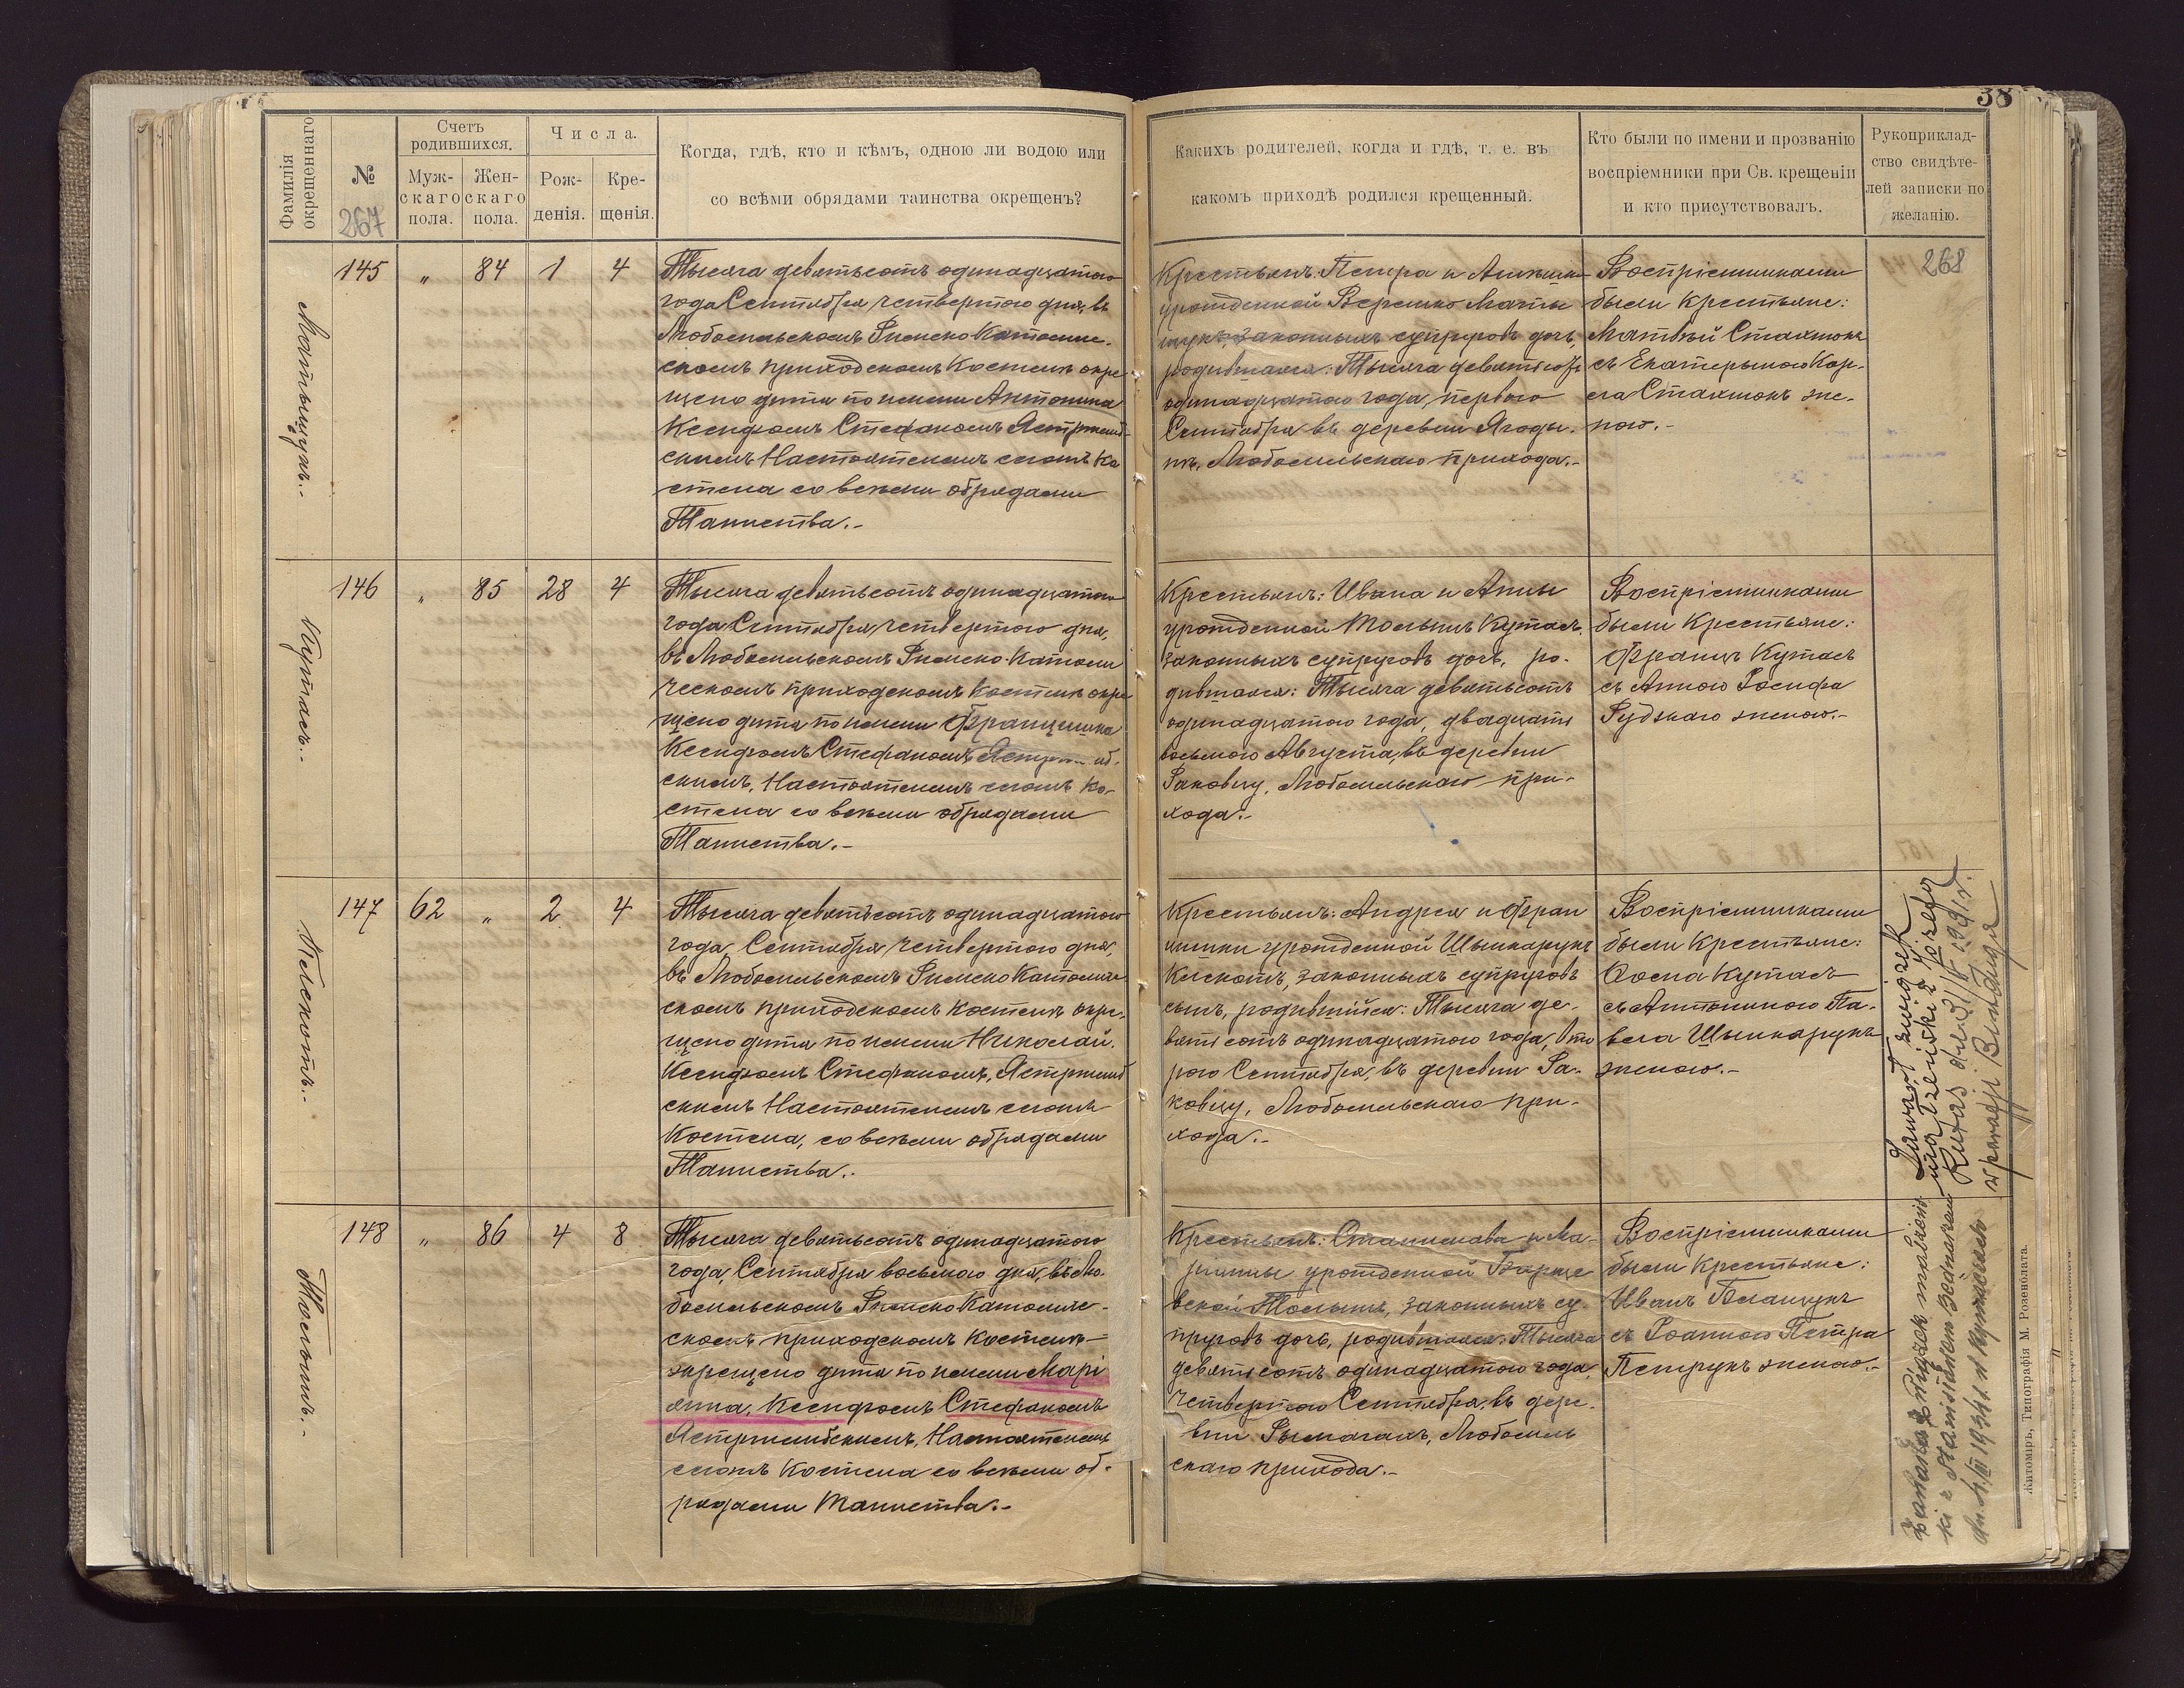 38
Фамилія окрещеннаго
№
267
Счетъ родившихся.
Мужскаго пола.
Женскаго пола.
Числа.
Рожденія.
Крещенія.
Когда, гдѣ, кто и кѣмъ, одною ли водою или
со всѣми обрядами таинства окрещенъ?
Какихъ родителей, когда и гдѣ, т. е. въ
какомъ приходѣ родился крещенный.
Кто были по имени и прозванію
воспріемники при Св. крещеніи
и кто присутствовалъ.
Рукоприклад-
ство свидѣте-
лей записки по
желанію.
268
145 „ 84 1 4
Тысяча девятьсотъ одинадцатого
года Сентября четвертого дня, въ
Любомльскомъ Римско Католиче-
скомъ приходскомъ Костелѣ окре
щено дитя по имени Антонина
Ксендзомъ Стефаномъ Ястржемб-
скимъ Настоятелемъ сегожъ Ко
стела со всѣми обрядами
Таинства.-
Крестьянъ: Петра и
урожденной
законныхъ супруговъ дочь,
родившаяся: Тысяча девятьсотъ
одинадцатого года, первого
Сентября въ деревни Ягоды-
нѣ, Любомльскаго прихода.-
Воспріемниками
были Крестьяне:
Матвѣй
съ Екатерыною Кар-
ла же-
ною.-
Кутасъ.-
146 „ 85 28 4
Тысяча девятьсотъ одинадцатого
года Сентября четвертого дня,
въ Любомльскомъ Римско-Католи
ческомъ приходскомъ Костелѣ окре
щено дитя по имени Францишка
Ксендзомъ Стефаномъ Ястржемб-
скимъ, Настоятелемъ сегожъ Ко-
стела со всѣми обрядами
Таинства.-
Крестьянъ: Ивана и Анны
урожденной Кутасъ,
законныхъ супруговъ дочь, ро-
дившаяся: Тысяча девятьсотъ
одинадцатого года, двадцать
восьмого Августа, въ деревни
Раковцу, Любомльскаго при-
хода.-
Воспріемниками
были Крестьяне:
Францъ Кутасъ
съ Анною Іосифа
Рудзкаго женою.-
147 62 „ 2 4
Тысяча девятьсотъ одинадцатого
года, Сентября четвертого дня,
въ Любомльскомъ Римско Католиче
скомъ приходскомъ Костелѣ окре-
щено дитя по имени Николай.
Ксендзомъ Стефаномъ, Ястржемб
скимъ Настоятелемъ сегожъ
Костела, со всѣми обрядами
Таинства.-
Крестьянъ: Андрея и Фран
цишки урожденной Шынкарукъ
законныхъ супруговъ
сынъ, родившійся: Тысяча де-
вятьсотъ одинадцатого года, вто
рого Сентября, въ деревни Ра-
ковцу, Любомльскаго при-
хода.-
Воспріемниками
были Крестьяне:
Кутасъ
съ Антониною Па-
вла Шынкарукъ
женою.-
Zawarł związek
małżeński z Józefą
Kutas dnia
w parafji
148 „ 86 4 8
Тысяча девятьсотъ одинадцатого
года, Сентября восьмого дня, въ Лю-
бомльскомъ Римско Католиче-
скомъ приходскомъ Костелѣ
окрещено дитя по имени Марі
янна, Ксендзомъ Стефаномъ
Ястржембскимъ, Настоятелемъ
сегожъ Костела со всѣми об-
рядами Таинства.-
Крестьянъ: Станислава и Ма-
рянны урожденной
законныхъ су-
пруговъ дочь, родившаяся: Тысяча
девятьсотъ одинадцатого года,
четвертого Сентября, въ дере-
вни Рымачахъ, Любомль
скаго прихода.-
Воспріемниками
были Крестьяне:
Иванъ
съ Іоанною Петра
Петрукъ женою.-
Zawarła związek małżeń
ski z Stanisławem
Житоміръ, Типографія М. Розенблата.